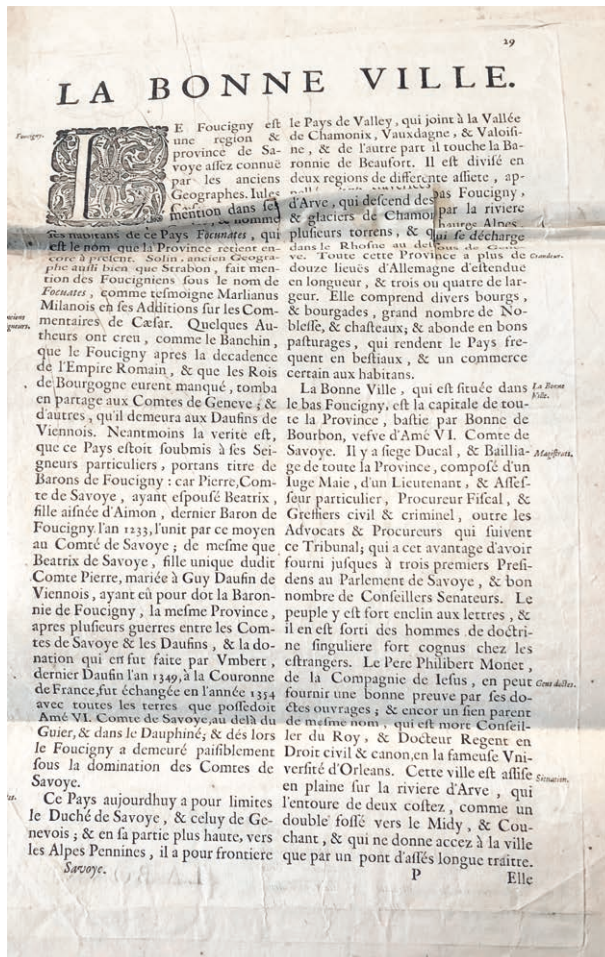 29
LA BONNE VILLE.
Foucigny.
LE Foucigny est
une region &
province de Sa-
voye assez connuë
par les anciens
Geographes. Iules
mention dans ses
& nomme
ses habitans de ce Pays Focunates, qui
est le nom que la Province retient en-
core à present. Solin, ancien Geogra-
phe aussi bien que Strabon, fait men-
tion des Foucigniens sous le nom de
Focuates, comme tesmoigne Marlianus
Milanois en ses Additions sur les Com-
mentaires de Cæsar. Quelques Au-
theurs ont creu, comme le Banchin,
que le Foucigny apres la decadence
de l'Empire Romain, & que les Rois
de Bourgogne eurent manqué, tomba
en partage aux Comtes de Geneve; &
d'autres, qu'il demeura aux Daufins de
Viennois. Neantmoins la verité est,
que ce Pays estoit soubmis à ses Sei-
gneurs particuliers, portans titre de
Barons de Foucigny: car Pierre, Com-
te de Savoye, ayant espousé Beatrix,
fille aisnée d'Aimon, dernier Baron de
Foucigny l'an 1233, l'unit par ce moyen
au Comté de Savoye; de mesme que
Beatrix de Savoye, fille unique dudit
Comte Pierre, mariée à Guy Daufin de
Viennois, ayant eû pour dot la Baron-
nie de Foucigny, la mesme Province,
apres plusieurs guerres entre les Com-
tes de Savoye & les Daufins, & la do-
nation qui en fut faite par Vmbert,
dernier Daufin l'an 1349, à la Couronne
de France, fut échangée en l'année 1354
avec toutes les terres que possedoit
Amé VI. Comte de Savoye, au delà du
Guier, & dans le Dauphiné; & dés lors
le Foucigny a demeuré paisiblement
sous la domination des Comtes de
Savoye.
Ce Pays aujourdhuy a pour limites
le Duché de Savoye, & celuy de Ge-
nevois; & en sa partie plus haute, vers
les Alpes Pennines, il a pour frontiere
Savoye.
le Pays de Valley, qui joint à la Vallée
de Chamonix, Vauxdagne, & Valoisi-
ne, & de l'autre part il touche la Ba-
ronnie de Beaufort. Il est divisé en
deux regions de differente assiete, ap-
bas Foucigny,
d'Arve, qui descend des
par la riviere
& glaciers de Chamon
hautes Alpes
plusieurs torrens, & qui se décharge
dans le Rhosne au dessous de Gene-
ve. Toute cette Province a plus de
Grandeur.
douze lieuës d'Allemagne d'estendue
en longueur, & trois ou quatre de lar-
geur. Elle comprend divers bourgs,
& bourgades, grand nombre de No-
blesse, & chasteaux; & abonde en bons
pasturages, qui rendent le Pays fre-
quent en bestiaux, & un commerce
certain aux habitans.
La Bonne Ville, qui est située dans
La Bonne
Ville.
le bas Foucigny, est la capitale de tou-
te la Province, bastie par Bonne de
Bourbon, vefve d'Amé VI. Comte de
Savoye. Il y a siege Ducal, & Baillia-
Magistrats.
ge de toute la Province, composé d'un
Iuge Maie, d'un Lieutenant, & Asses-
seur particulier, Procureur Fiscal, &
Greffiers civil & criminel, outre les
Advocats & Procureurs qui suivent
ce Tribunal; qui a cet avantage d'avoir
fourni jusques à trois premiers Presi-
dens au Parlement de Savoye, & bon
nombre de Conseillers Senateurs. Le
peuple y est fort enclin aux lettres, &
il en est sorti des hommes de doctri-
ne singuliere fort cognus chez les
estrangers. Le Pere Philibert Monet,
de la Compagnie de Iesus, en peut
Gens doctes.
fournir une bonne preuve par ses do-
ctes ouvrages; & encor un sien parent
de mesme nom, qui est mort Conseil-
ler du Roy, & Docteur Regent en
Droit civil & canon, en la fameuse Vni-
versité d'Orleans. Cette ville est assise
Situation.
en plaine sur la riviere d'Arve, qui
l'entoure de deux costez, comme un
double fossé vers le Midy, & Cou-
chant, & qui ne donne accez à la ville
que par un pont d'assés longue traitte.
P
Elle